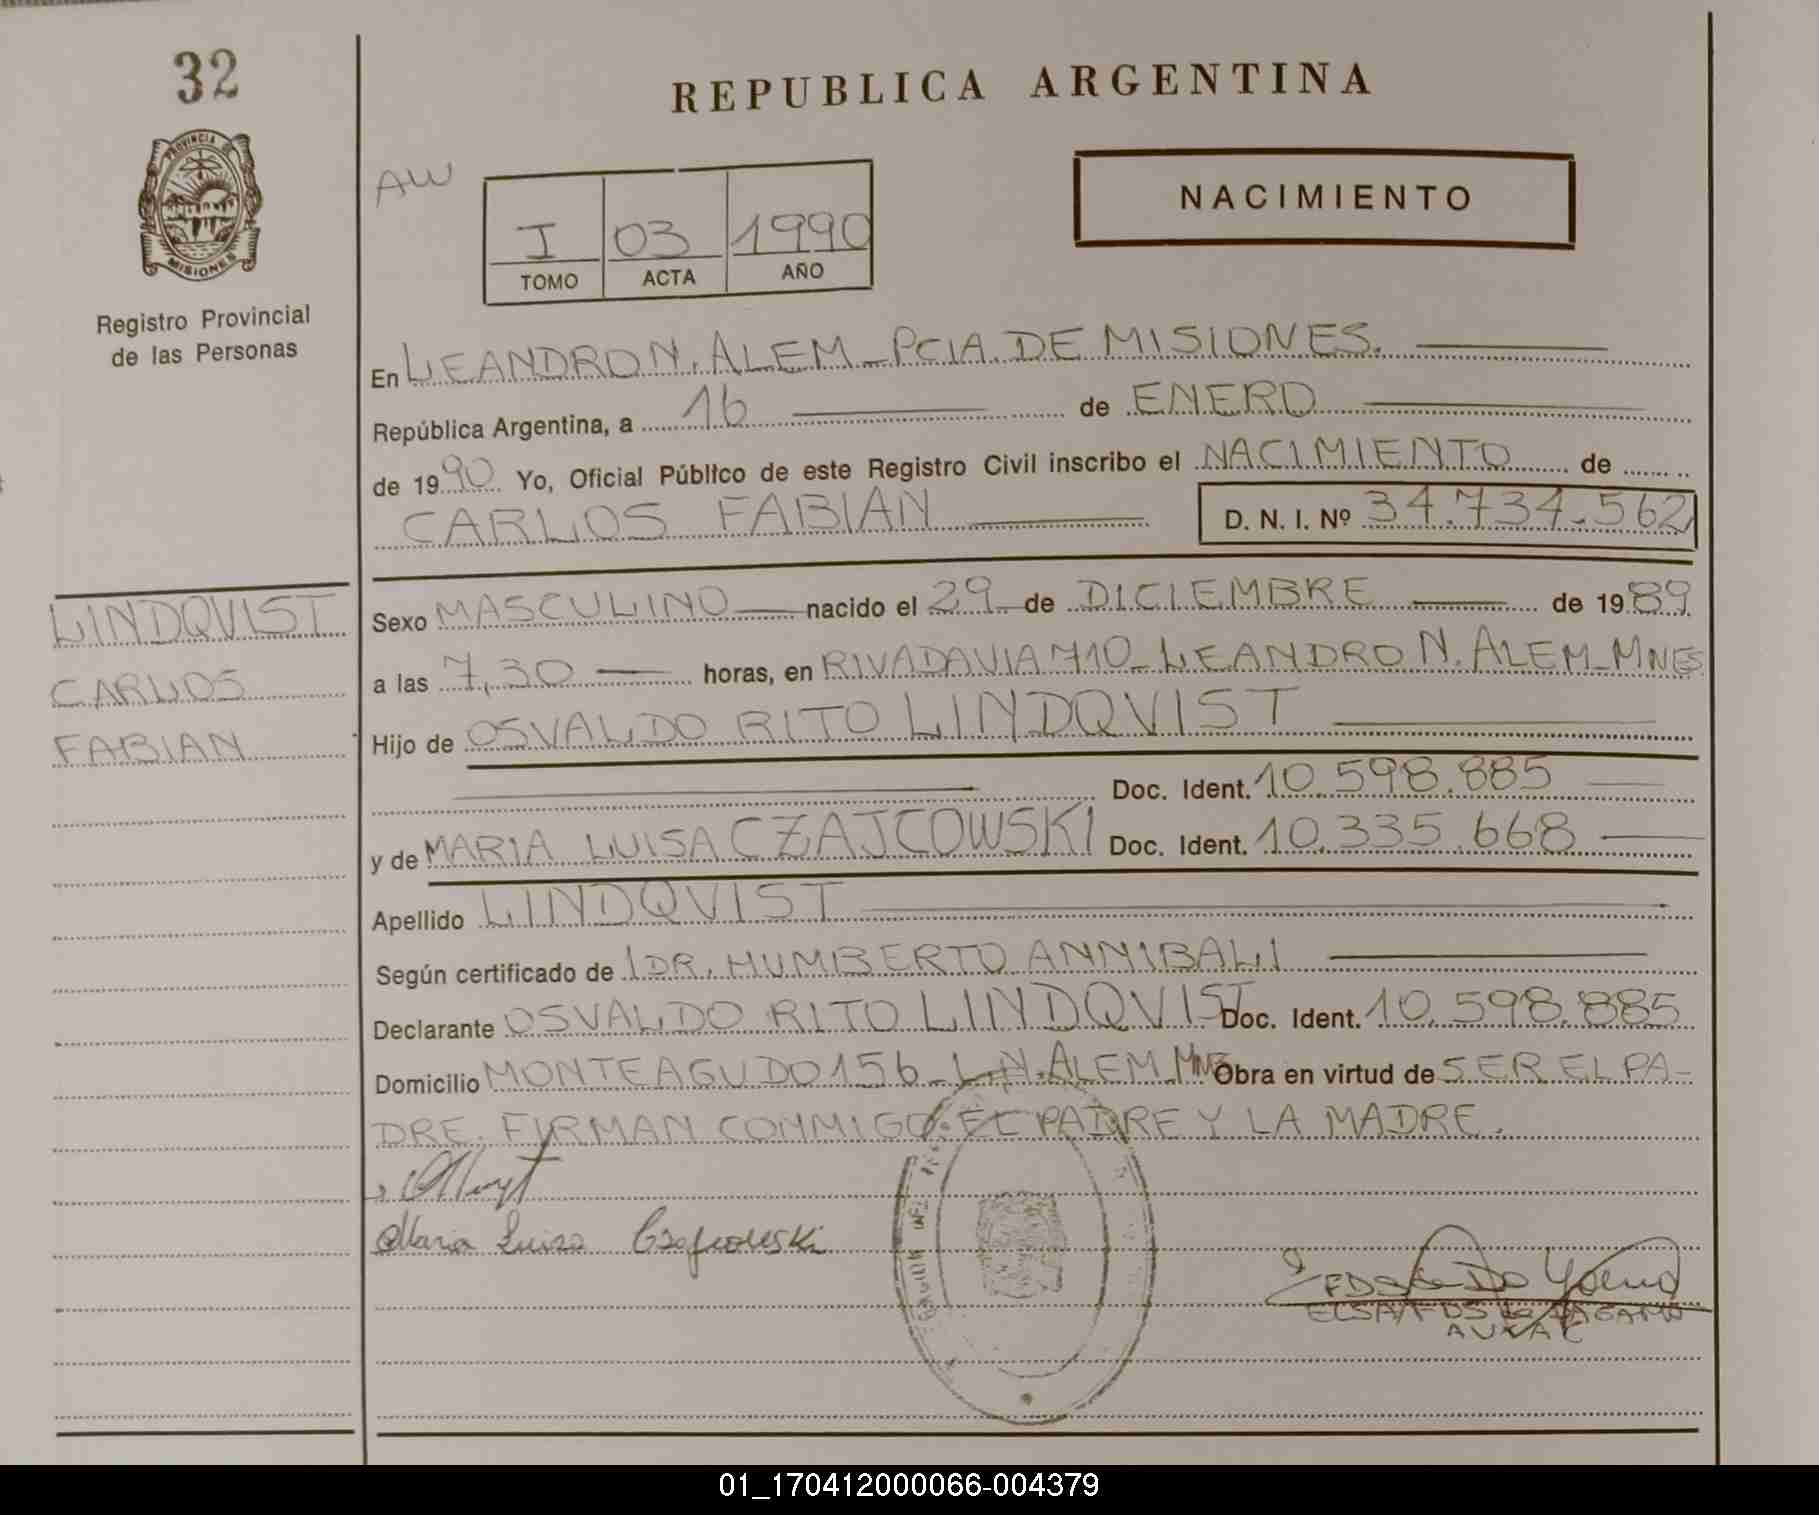 32
REPUBLICA ARGENTINA
PROVINCIA DE
MISIONES
Registro Provincial
de las Personas
AW
I 03 1990
TOMO ACTA AÑO
NACIMIENTO
En LEANDRO N. ALEM - PCIA. DE MISIONES.
República Argentina, a 16 de ENERO
de 1990 Yo, Oficial Público de este Registro Civil inscribo el NACIMIENTO de
CARLOS FABIAN D. N. I. Nº 34.734.562
LINDQVIST
CARLOS
FABIAN
Sexo MASCULINO nacido el 29 de DICIEMBRE de 1989
a las 7,30 horas, en RIVADAVIA 710 - LEANDRO N. ALEM - MNES
Hijo de OSVALDO RITO LINDQVIST
Doc. Ident. 10.598.885
y de MARIA LUISA CZAJCOWSKI Doc. Ident. 10.335.668
Apellido LINDQVIST
Según certificado de DR. HUMBERTO ANNIBALI
Declarante OSVALDO RITO LINDQVIST Doc. Ident. 10.598.885
Domicilio MONTEAGUDO 156 - L.N. ALEM MNES Obra en virtud de SER EL PA-
DRE. FIRMAN CONMIGO. EL PADRE Y LA MADRE.
Maria Luisa Czajcowski
01_170412000066-004379